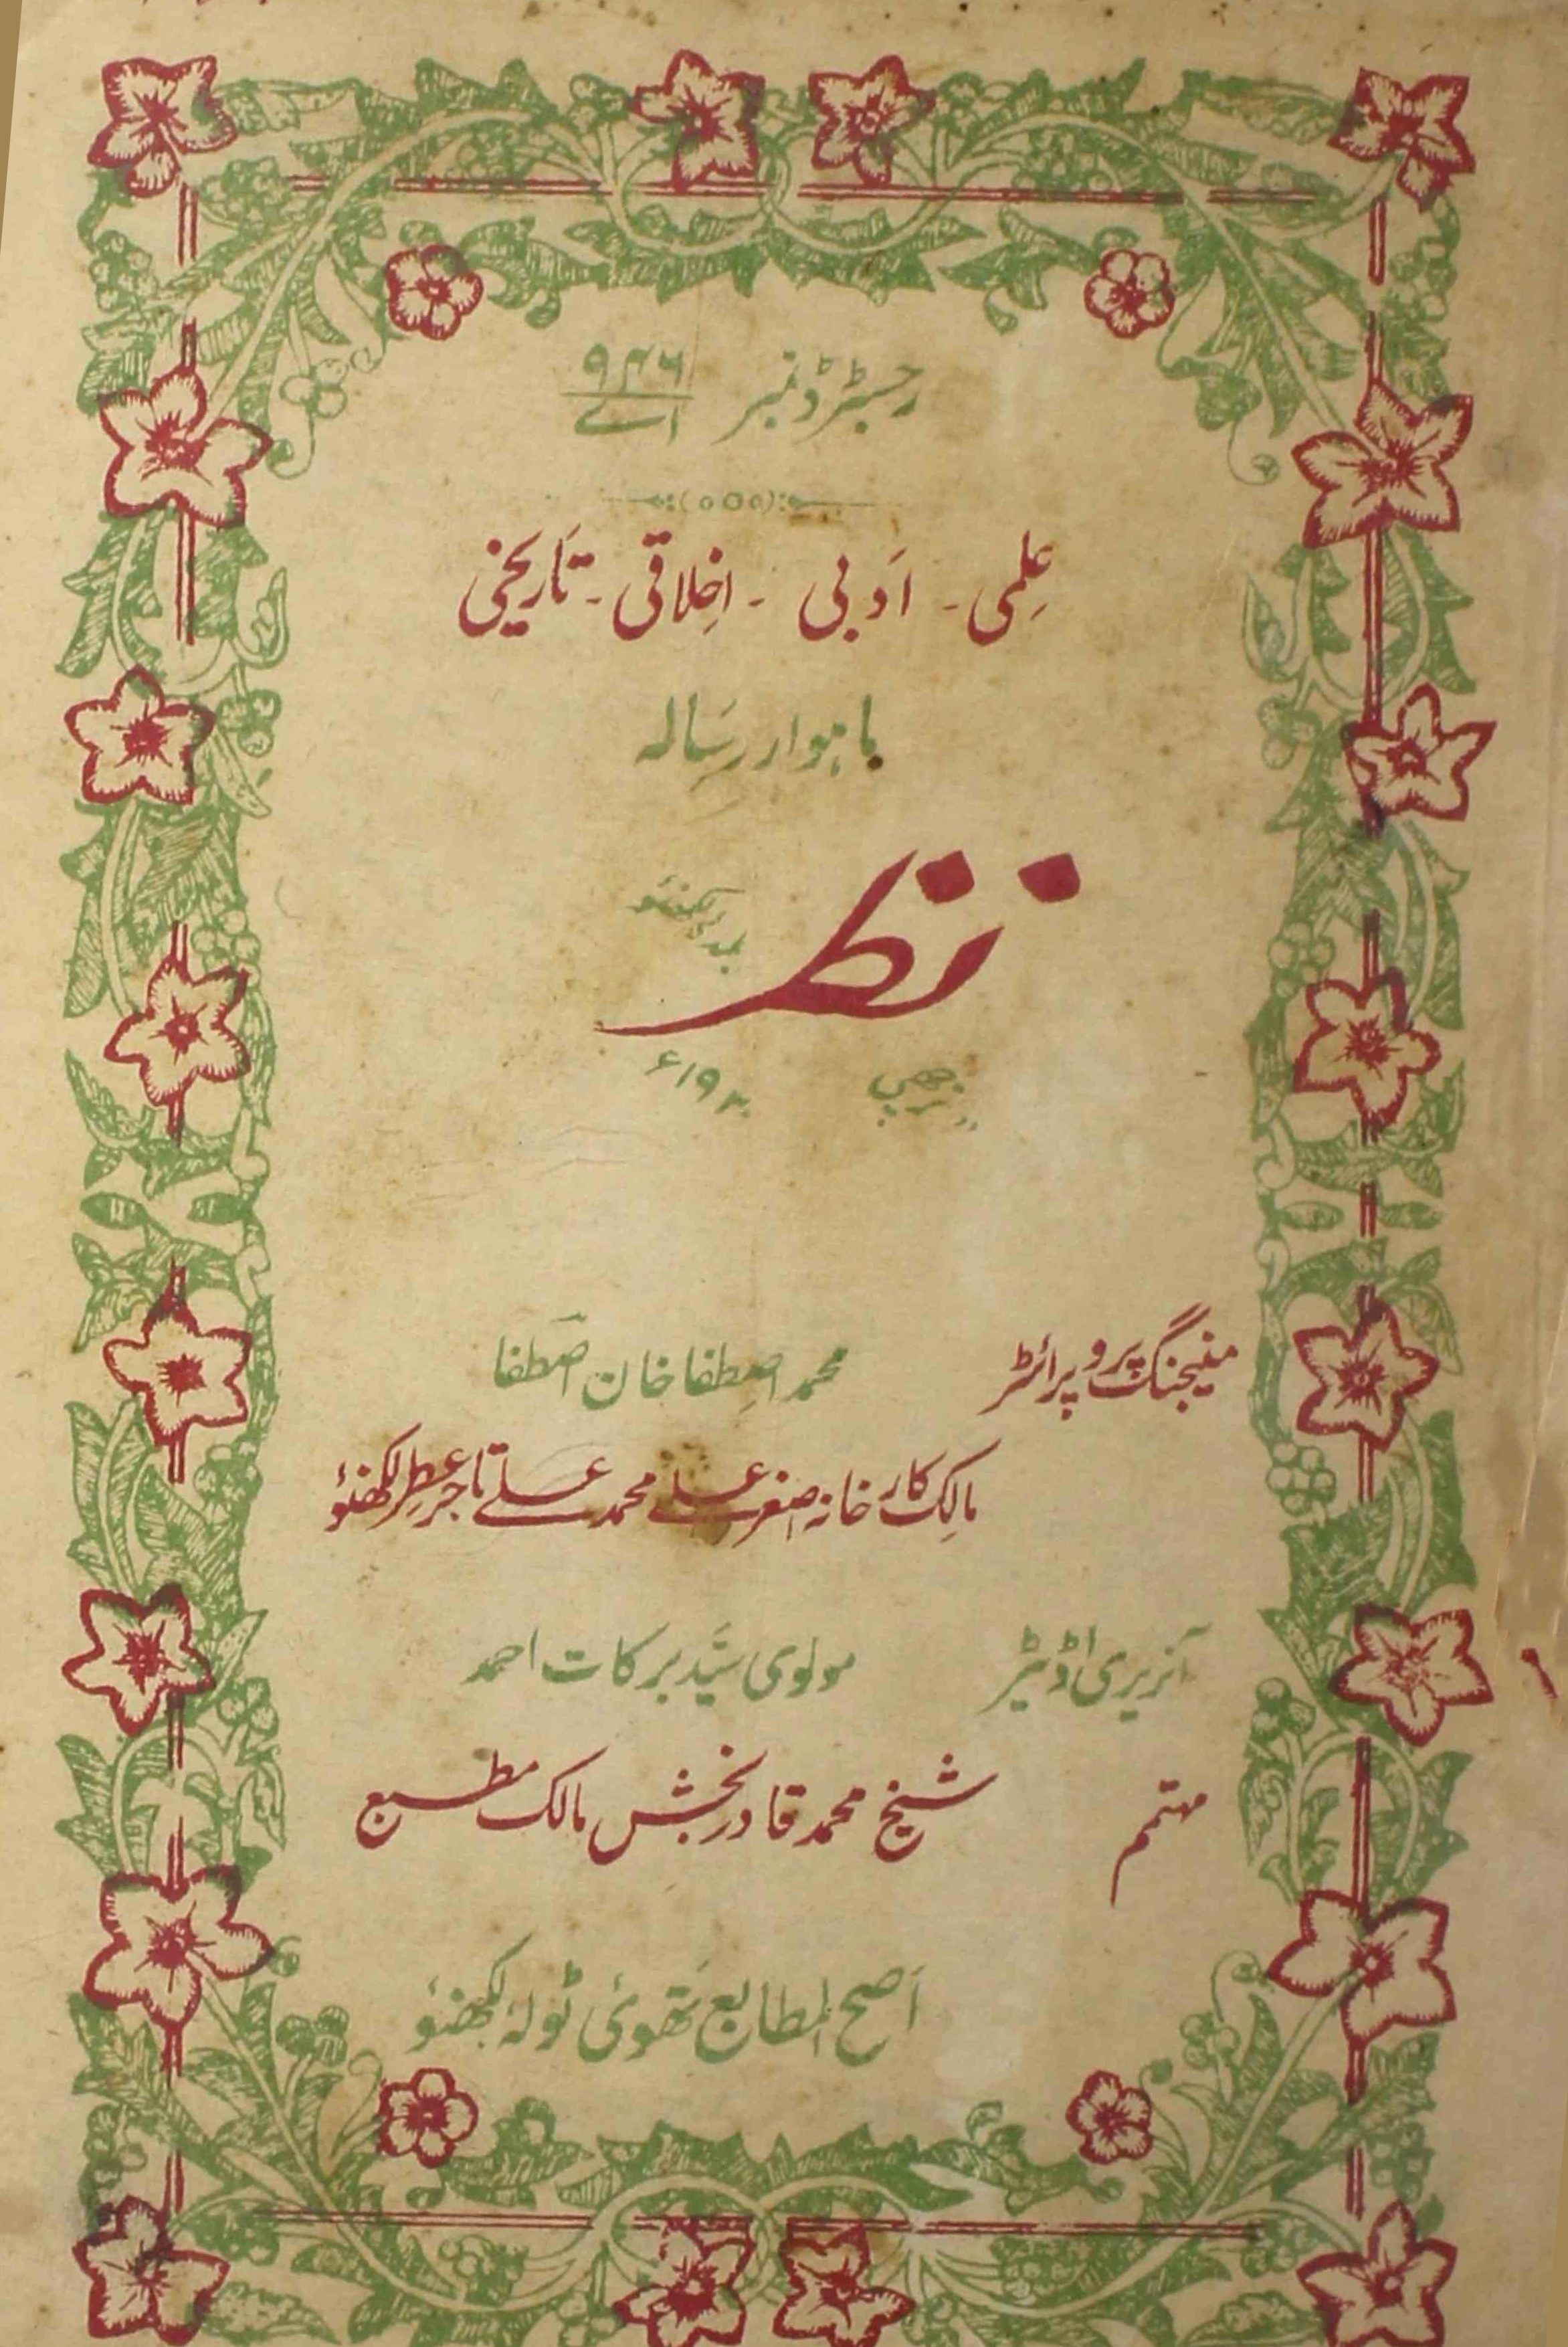 رجسٹرڈ نمبر ۹۴۶ / اے
عِلمی - اَدبی - اخِلاقی - تَاریخی
ماہوار رِسَالہ
نظر
لکھنئو
۱۹۲ء
منیجنگ پروپرائٹر محمد اصِطفا خان اصَطفا
مالِک کارخانہ اصغر علے محمد علے تاجرِ عطِر لکھنؤ
آنریری اڈیٹر مولوی سیَّد برکات احمد
مہتمم شیخ محمد قادر بخش مالک مطبع
اَصح المطابع تھَوئی ٹولہ لکھنؤ